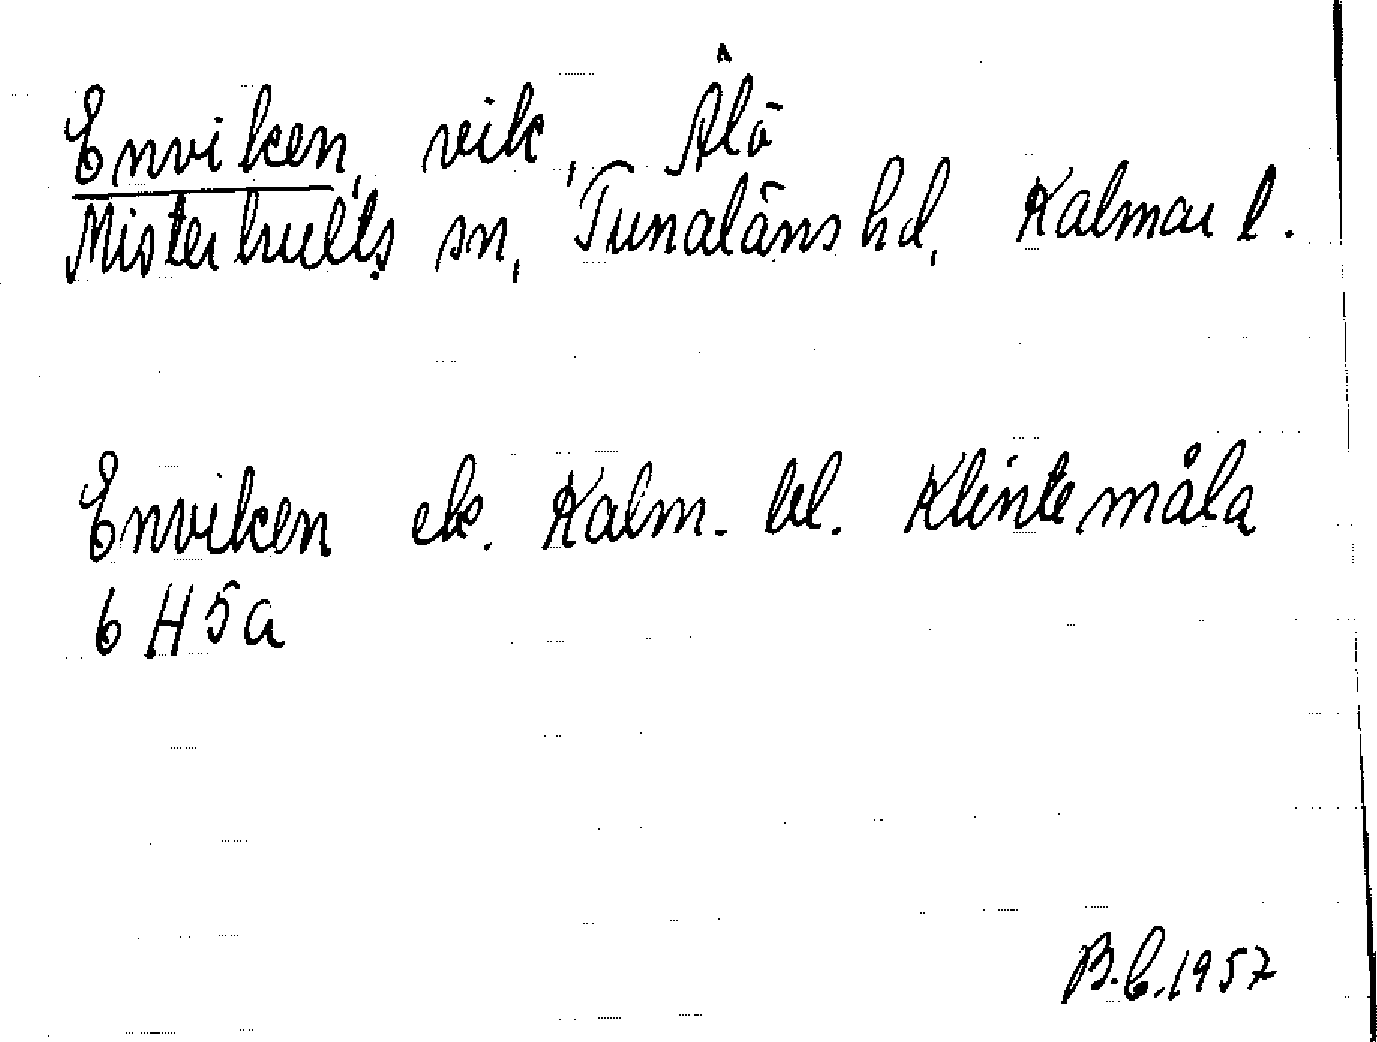 Enviken, vik, Älö
Misterhults sn, Tunaläns hd, Kalmar l.
Enviken ek. Kalm. bl. Klintemåla
6 H 5a
B.C. 1957